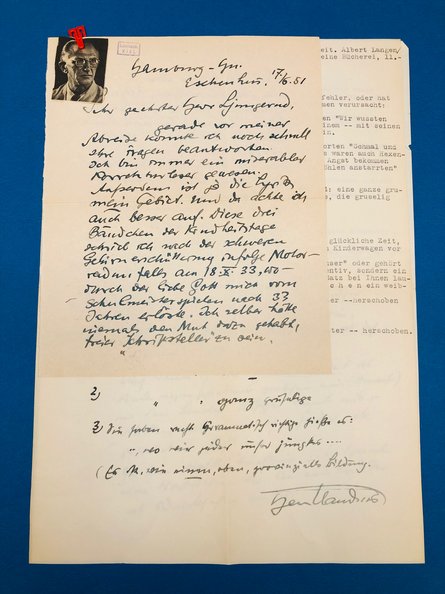 Hamburg-Gr.
17/6. 51
Sehr geehrter Herr
gerade vor meiner
Abreise konnte ich noch schnell
Ihre Fragen beantworten
Ich bin immer ein miserabler
Korrekturleser gewesen.
Ausserdem ist ja die Lyrik
mein Gebiet. Und da achte ich
auch besser auf. Diese drei
Bändchen der Kindheitstage
schrieb ich nach der schweren
Gehirnerschütterung infolge Motor-
radunfalls am 18. X. 33,
durch der liebe Gott mich vom
Schulmeisterspielen nach 33
Jahren erlöste. Ich selber hätte
niemals den Mut dazu gehabt,
freier Schriftsteller zu sein.
2) " " ganz gruselige
3) Sie haben recht. Grammatisch richtig hieße es:
", wo wir jeder unser jüngstes ....
(Es ist, wie eben, provinzielle Bildung.
eit. Albert Langen/
eine Bücherei, 11.-
fehler, oder hat
ermen verursacht:
en "Wir wussten
inem -- mit seinen
in.
orten "Schmal und
s waren amen Hexen-
Angst bekommen
ahlen anstarrten"
t: eine ganze gru-
e, die gruselig
glückliche Zeit,
Kinderwagen vor
user" oder gehört
entiv, sondern ein
atz bei Ihnen lau-
c h e n ein weib-
er --herschoben
ter -- herschoben.